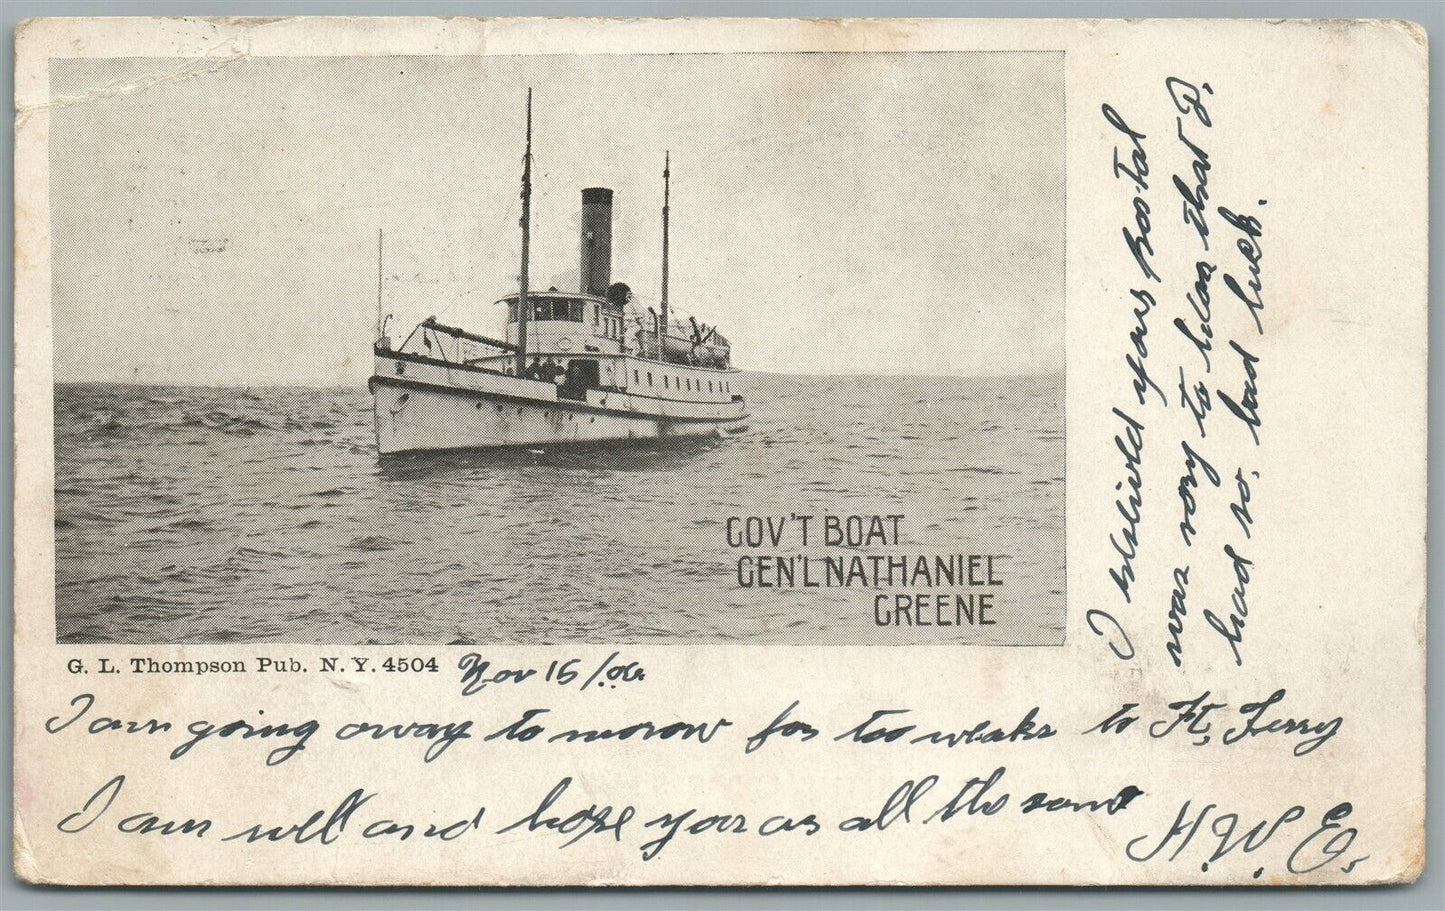 GOV'T BOAT
GEN'L NATHANIEL
GREENE
G. L. Thompson Pub. N. Y. 4504
Nov 15/06
I am going away to morow for too weaks to Ft, Terry
I am well and hope you as all the same
H. W. E.
I received your postal
was very to hear that P.
had so, bad luck.